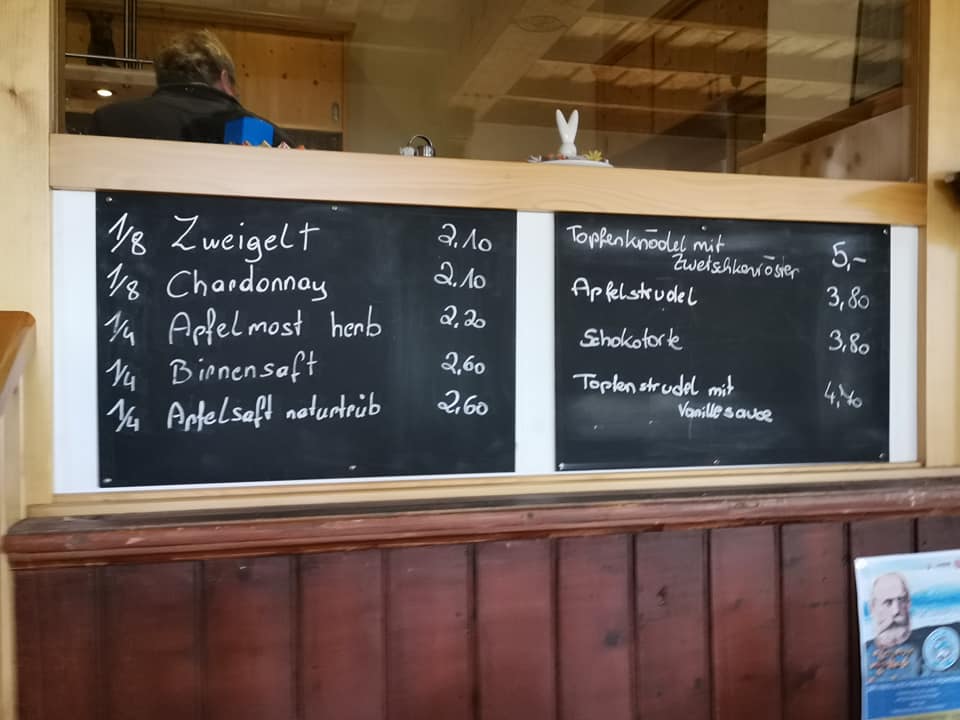 1/8 Zweigelt 2,10
1/8 Chardonnay 2,10
1/4 Apfelmost herb 2,20
1/4 Birnensaft 2,60
1/4 Apfelsaft naturtrüb 2,60
Topfenknödel mit
Zwetschkenröster 5,-
Apfelstrudel 3,80
Schokotorte 3,80
Topfenstrudel mit 4,70
Vanillesauce